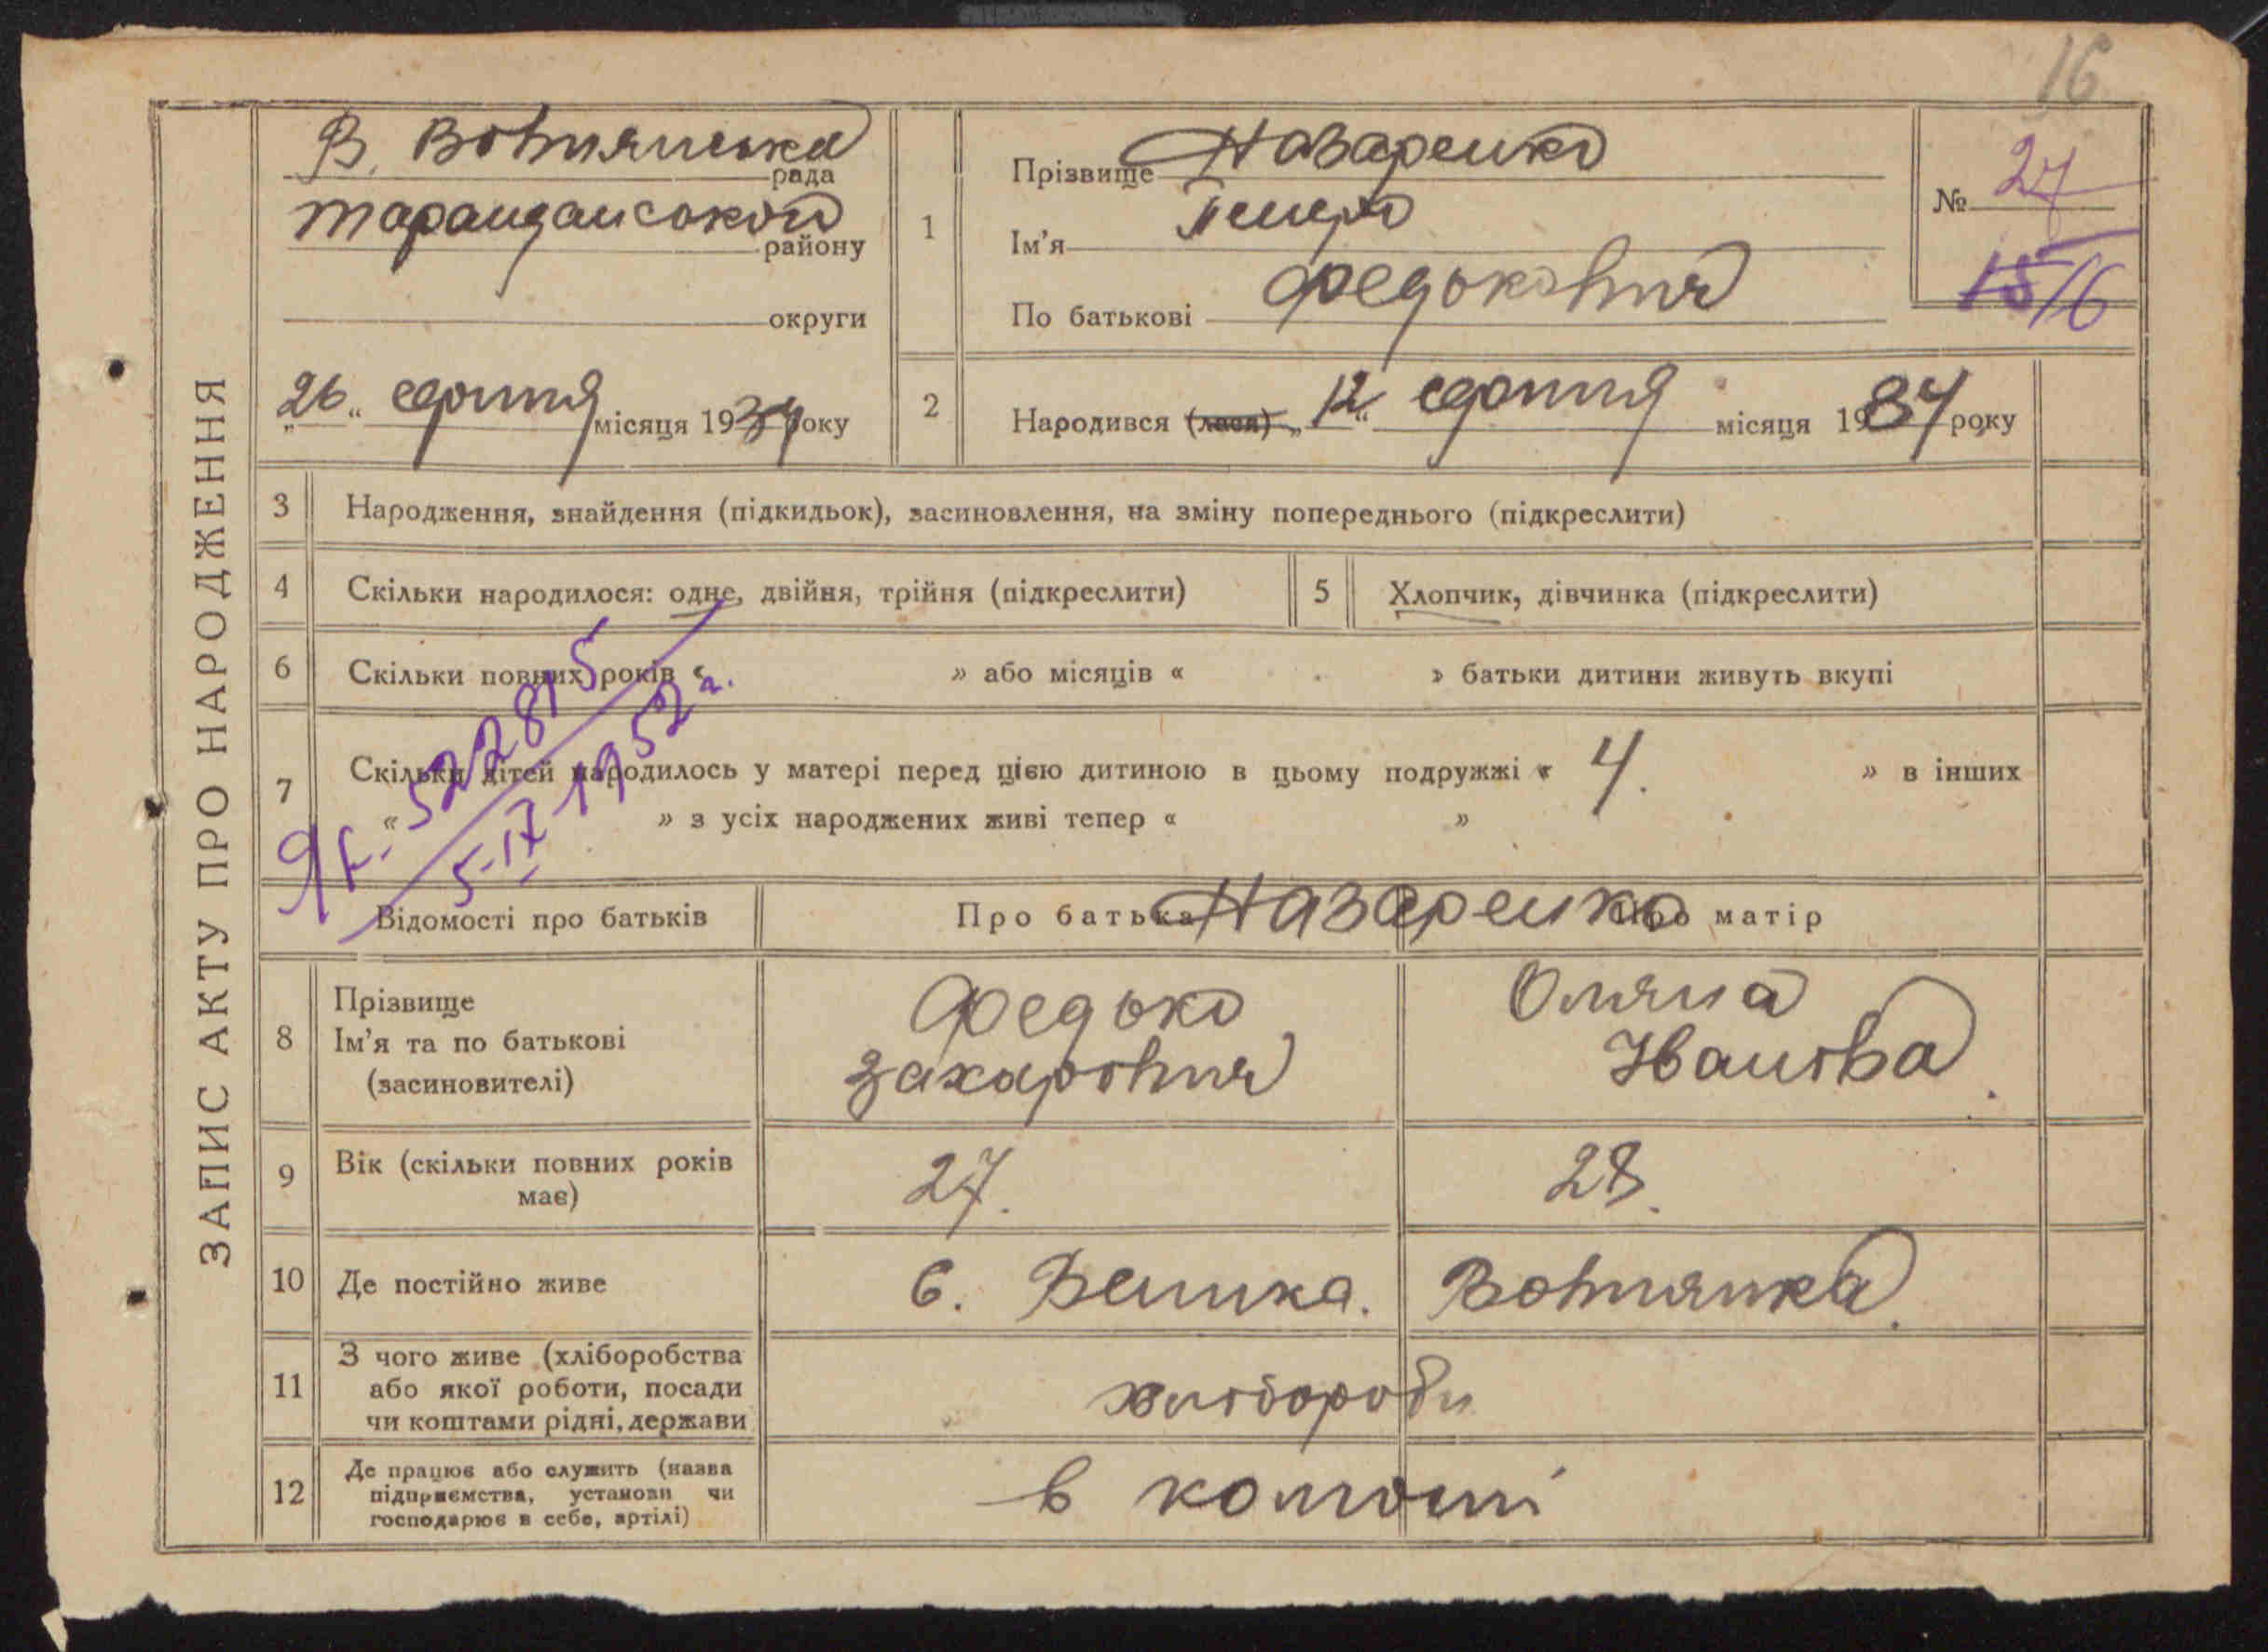 16
ЗАПИС АКТУ ПРО НАРОДЖЕННЯ
В. Вовнянська рада
Таращанського району
округи
„26“ серпня місяця 1934 року
1
Прізвище Назаренко
Ім'я Петро
По батькові Федькович
№ 27
15/6
2
Народився (лася) „12“ серпня місяця 1934 року
3 Народження, знайдення (підкидьок), засиновлення, на зміну попереднього (підкреслити)
4 Скільки народилося: одне, двійня, трійня (підкреслити)
5 Хлопчик, дівчинка (підкреслити)
6 Скільки повних років « » або місяців « » батьки дитини живуть вкупі
7 Скільки дітей народилось у матері перед цією дитиною в цьому подружжі « 4. » в інших
« » з усіх народжених живі тепер « »
522815
5-IV-1952 г.
Відомості про батьків Про батька Про матір
Назаренко
8 Прізвище
Ім'я та по батькові
(засиновителі)
Федько
Захарович
Оляна
Іванова
9 Вік (скільки повних років
має)
27.
28.
10 Де постійно живе с. Велика. Вовнянка.
11 З чого живе (хліборобства
або якої роботи, посади
чи коштами рідні, держави
хлібороби
12 Де працює або служить (назва
підприємства, установи чи
господарює в себе, артілі)
в колгоспі